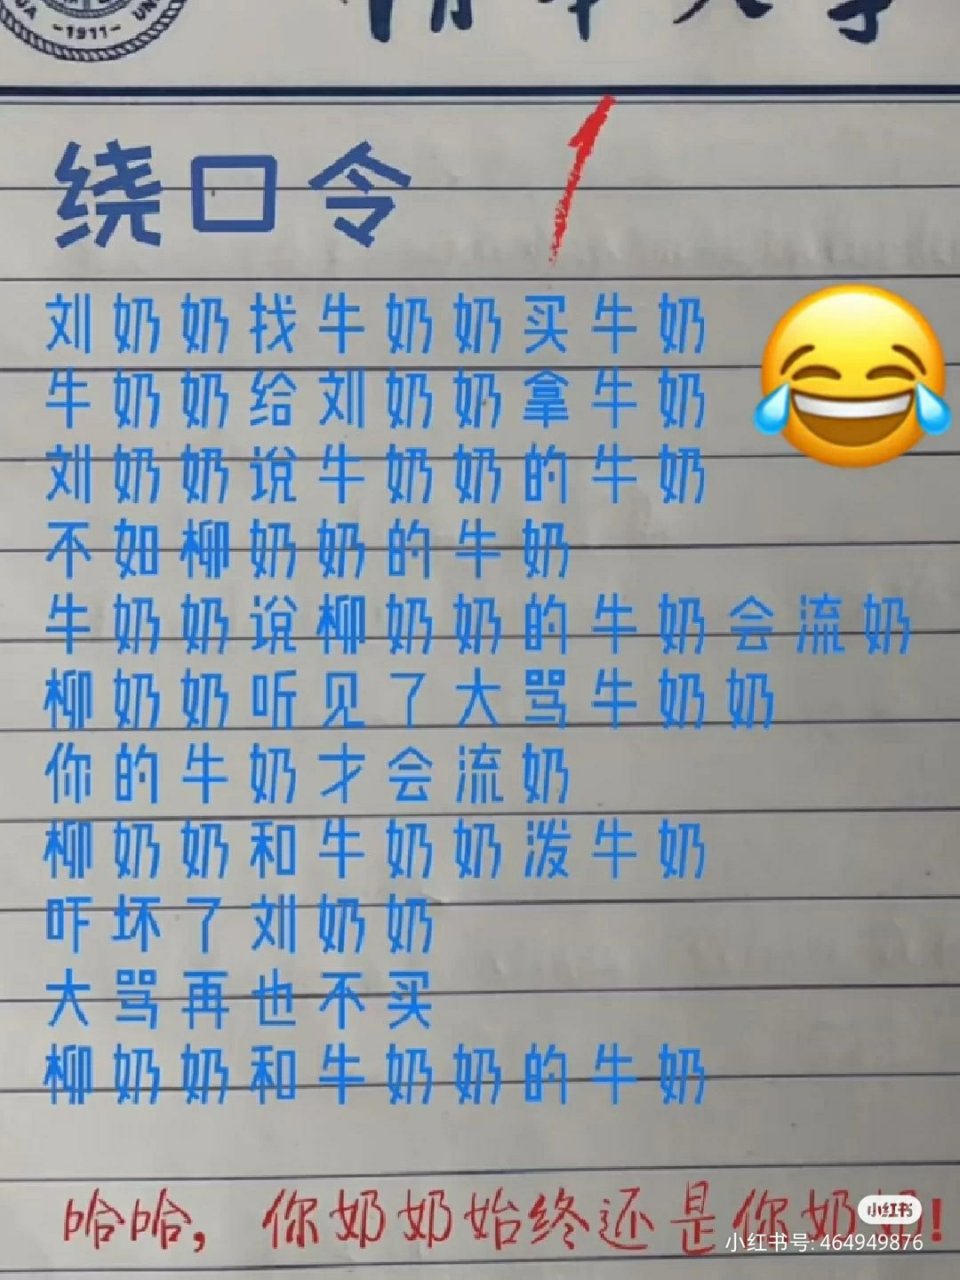 -1911-
绕口令
刘奶奶找牛奶奶买牛奶
牛奶奶给刘奶奶拿牛奶
刘奶奶说牛奶奶的牛奶
不如柳奶奶的牛奶
牛奶奶说柳奶奶的牛奶会流奶
柳奶奶听见了大骂牛奶奶
你的牛奶才会流奶
柳奶奶和牛奶奶泼牛奶
吓坏了刘奶奶
大骂再也不买
柳奶奶和牛奶奶的牛奶
哈哈，你奶奶始终还是你奶奶!
小红书
小红书号: 464949876